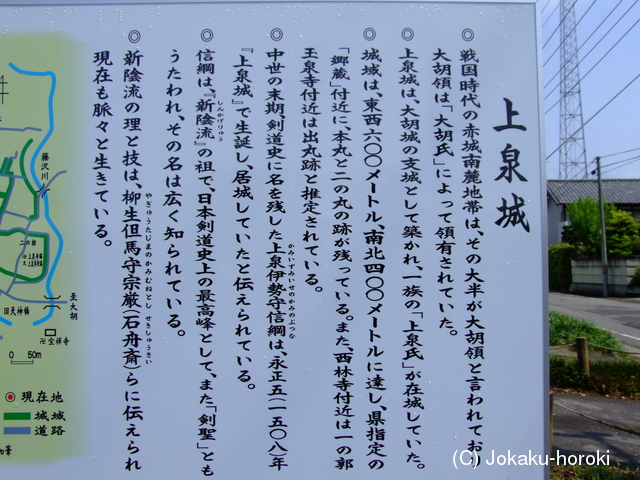 上泉城
◎戦国時代の赤城南麓地帯は、その大半が大胡領と言われており
大胡領は、「大胡氏」によって領有されていた。
◎上泉城は、大胡城の支城として築かれ、一族の「上泉氏」が在城していた。
◎城域は、東西六〇〇メートル、南北四〇〇メートルに達し、県指定の
「郷蔵」付近に、本丸と二の丸の跡が残っている。また、西林寺付近は一の郭
玉泉寺付近は出丸跡と推定されている。
◎中世の末期、剣道史に名を残した上泉伊勢守信綱は、永正五(一五〇八)年
かみいずみいせのかみのぶつな
『上泉城』で生誕し、居城していたと伝えられている。
◎信綱は、『新陰流』の祖で、日本剣道史上の最高峰として、また「剣聖」とも
しんかげりゅう
うたわれ、その名は広く知られている。
◎新陰流の理と技は、柳生但馬守宗厳(石舟斎)らに伝えられ
やぎゅうたじまのかみむねとし せきしゅうさい
現在も脈々と生きている。
藤沢川
二の郭
至大胡
旧天神橋
卍宝禅寺
0 50m
現在地
城域
道路
(C) Jokaku-horoki